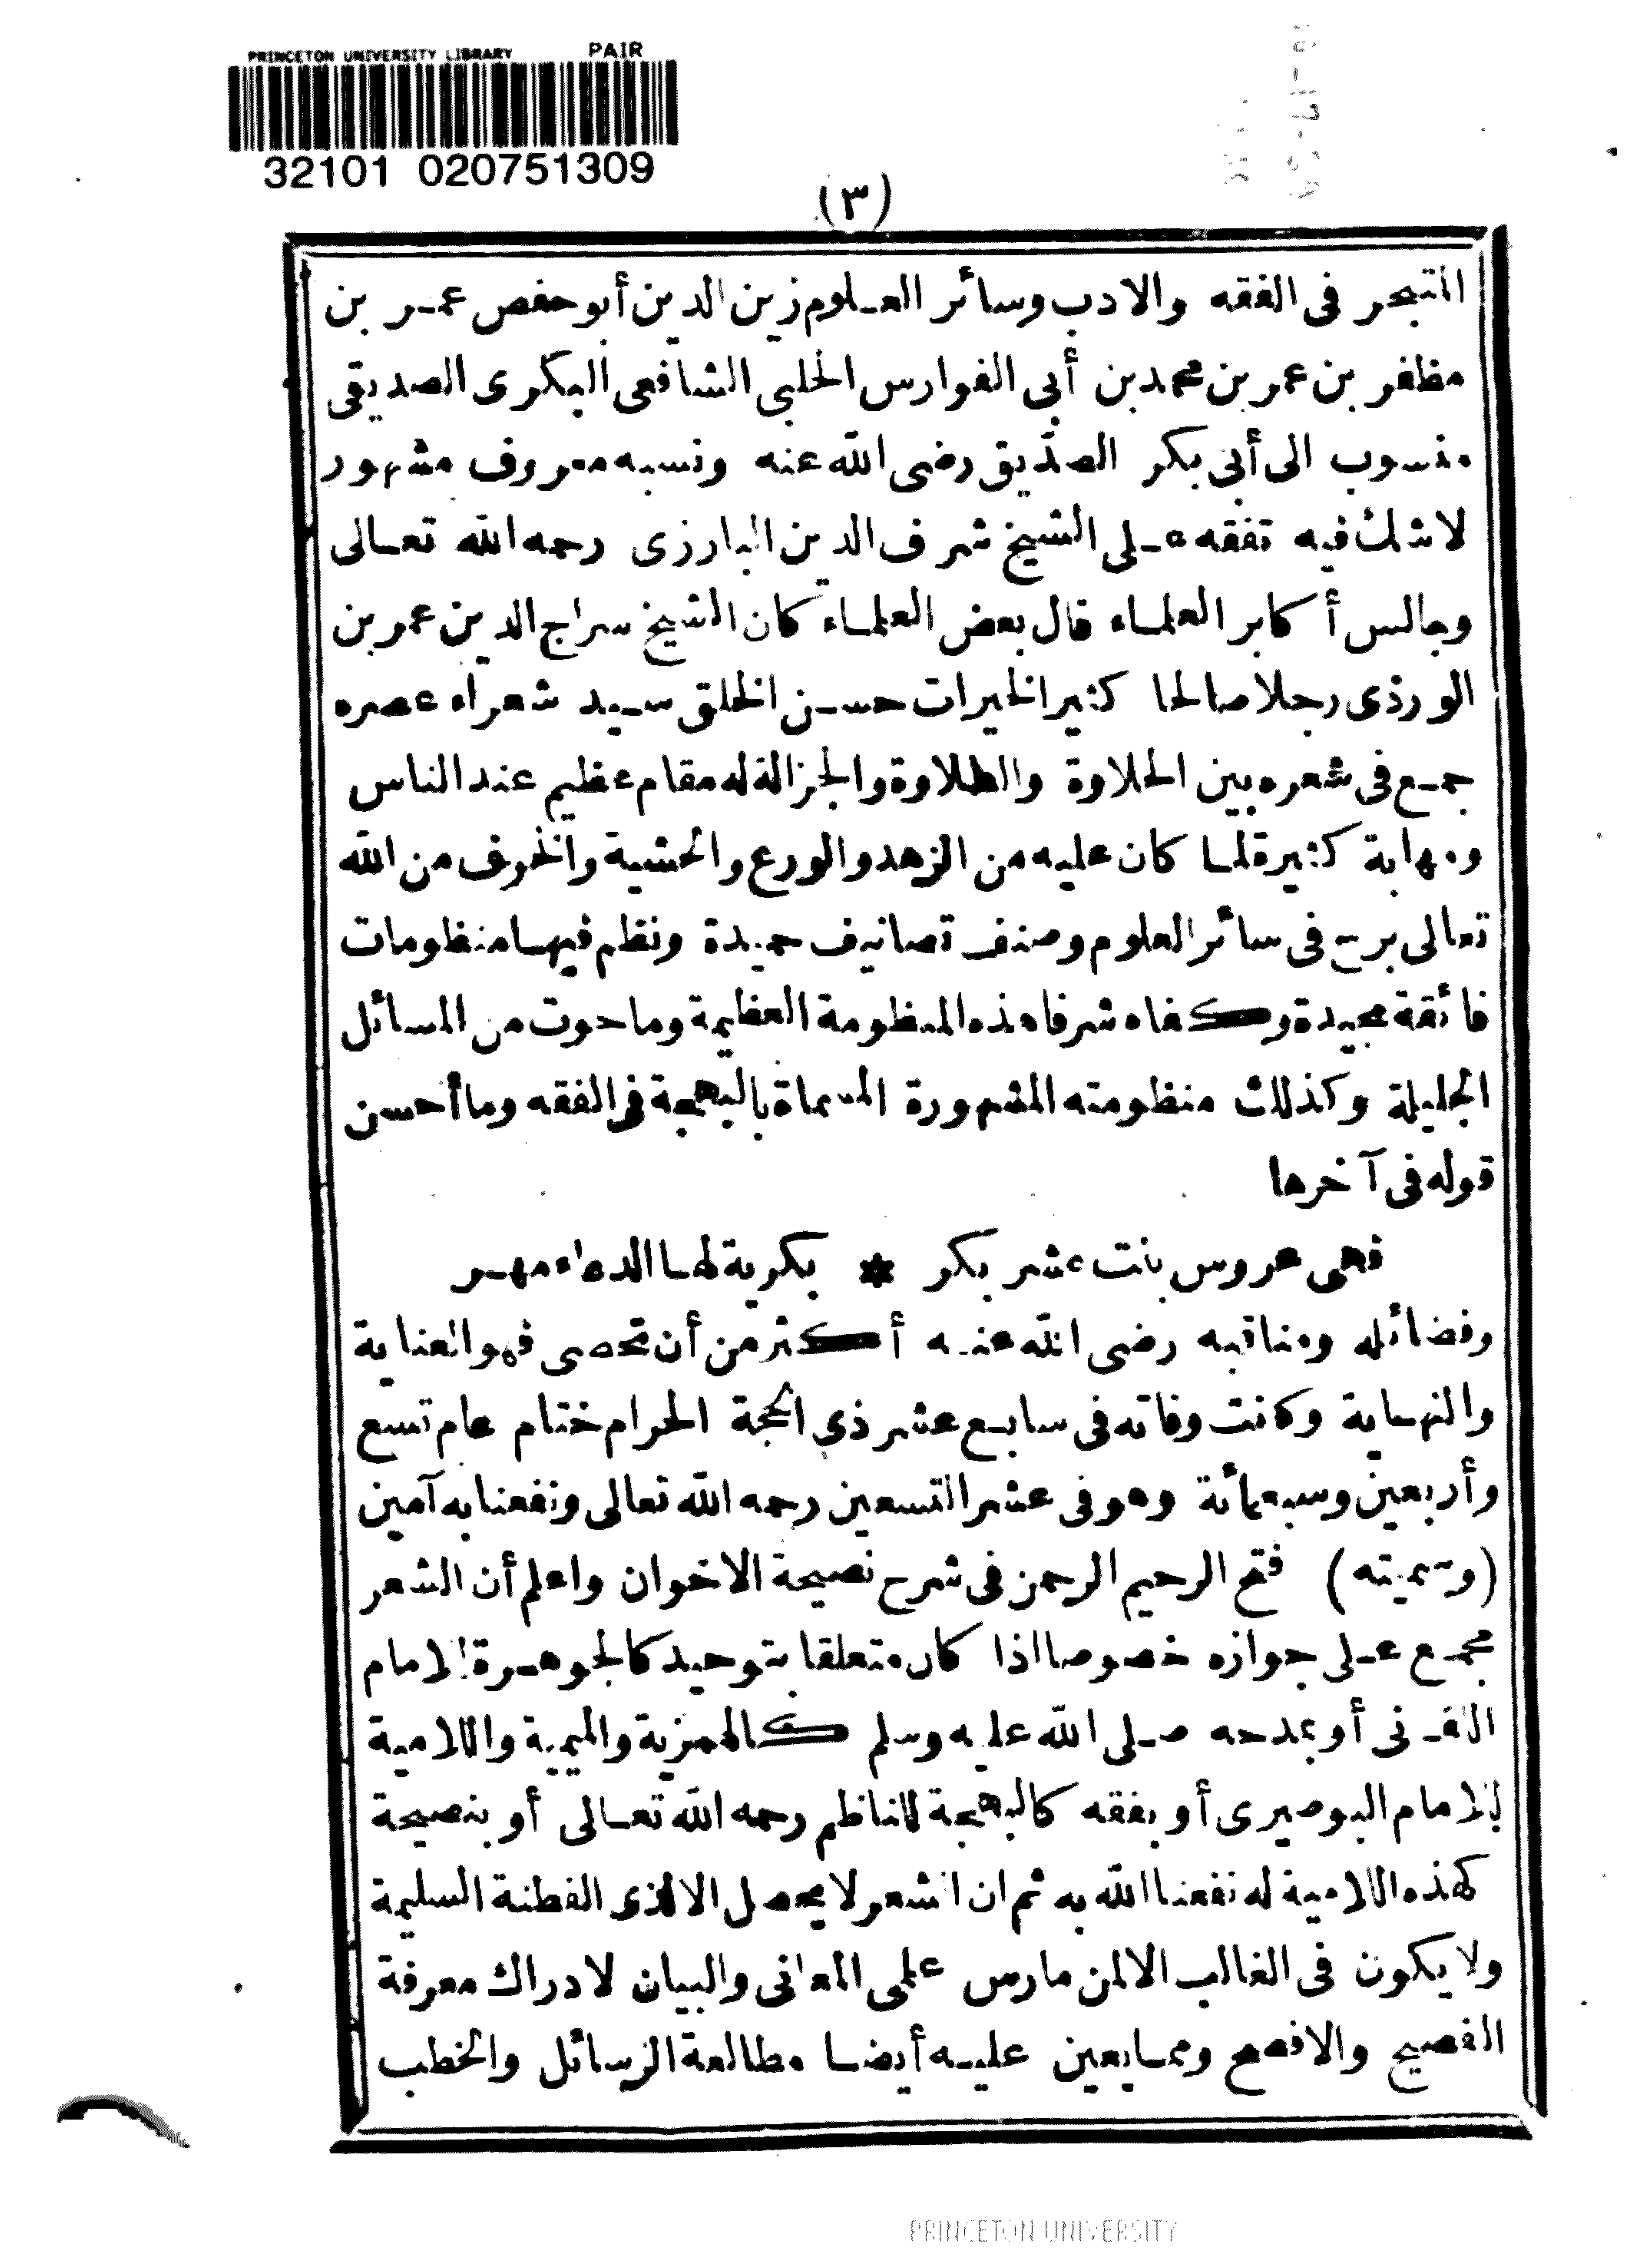 PRINCETON UNIVERSITY LIBRARY PAIR
32101 020751309
(٣)
المتبحر فى الفقه والادب وسائر العلوم زين الدين أبو حفص عمر بن
مظفر بن عمر بن محمد بن أبى الفوارس الحلبى الشافعى البكرى الصديقى
منسوب الى أبى بكر الصدّيق رضى الله عنه ونسبه معروف مشهور
لاشك فيه تفقه على الشيخ شرف الدين البارزى رحمه الله تعالى
وجالس أكابر العلماء قال بعض العلماء كان الشيخ سراج الدين عمر بن
الوردى رجلا صالحا كثير الخيرات حسن الخلق سيد شعراء عصره
جمع فى شعره بين الحلاوة والطلاوة والجزالة له مقام عظيم عند الناس
ومهابة كثيرة لما كان عليه من الزهد والورع والخشية والخوف من الله
تعالى برع فى سائر العلوم وصنف تصانيف حميدة ونظم فيها منظومات
فائقة مجيدة وكفاه شرفا هذه المنظومة العظيمة وما حوت من المسائل
الجليلة وكذلك منظومته المشهورة المسماة بالبهجة فى الفقه وما أحسن
قوله فى آخرها
فهى عروس بنت عشر بكر * بكرية لها الدعاء مهر
وفضائله ومناقبه رضى الله عنه أكثر من أن تحصى فهو العناية
والنهاية وكانت وفاته فى سابع عشر ذى الحجة الحرام ختام عام تسع
وأربعين وسبعمائة وهو فى عشر التسعين رحمه الله تعالى ونفعنا به آمين
(وسميته) فتح الرحيم الرحمن فى شرح نصيحة الاخوان واعلم أن الشعر
مجمع على جوازه خصوصا اذا كان متعلقا بتوحيد كالجوهرة للامام
اللقانى أو بمدحه صلى الله عليه وسلم كالهمزية والميمية واللامية
للامام البوصيرى أو بفقه كالبهجة للناظم رحمه الله تعالى أو بنصيحة
كهذه اللامية له نفعنا الله به ثم ان الشعر لا يحصل الا لذى الفطنة السليمة
ولا يكون فى الغالب الا لمن مارس علمى المعانى والبيان لادراك معرفة
الفصيح والافصح ومما يعين عليه أيضا مطالعة الرسائل والخطب
PRINCETON UNIVERSITY